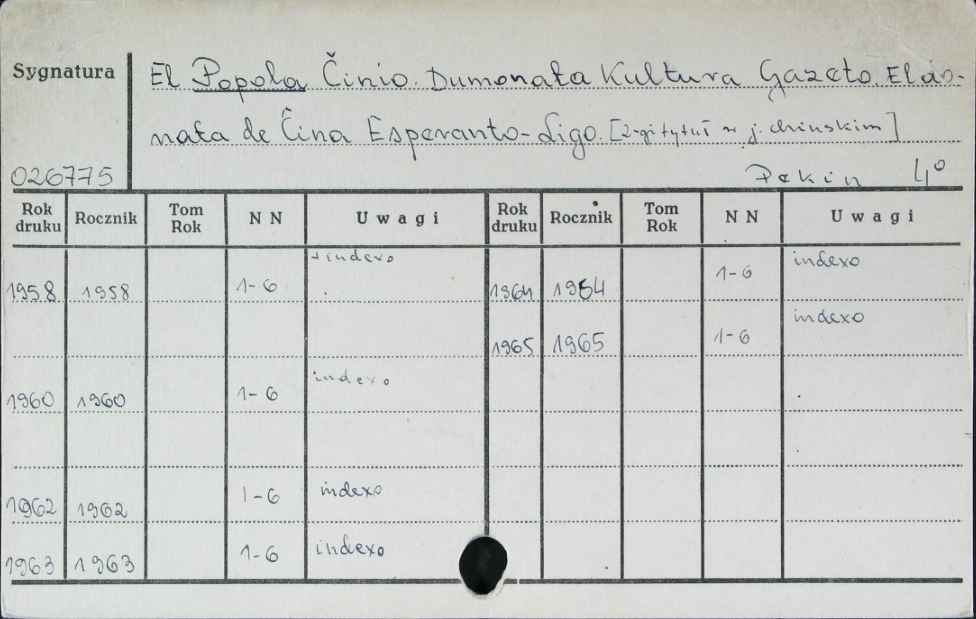 Sygnatura
El Popola Činio. Dumonata Kultura Gazeto. Eldo-
nata de Čina Esperanto-Ligo. [2-gi tytuł w j. chińskim]
026775 Pekin 4°
Rok druku Rocznik Tom Rok N N Uwagi Rok druku Rocznik Tom Rok N N Uwagi
1958 1958 1-6 + indexo 1964 1964 1-6 indexo
1965 1965 1-6 indexo
1960 1960 1-6 indexo
1962 1962 1-6 indexo
1963 1963 1-6 indexo